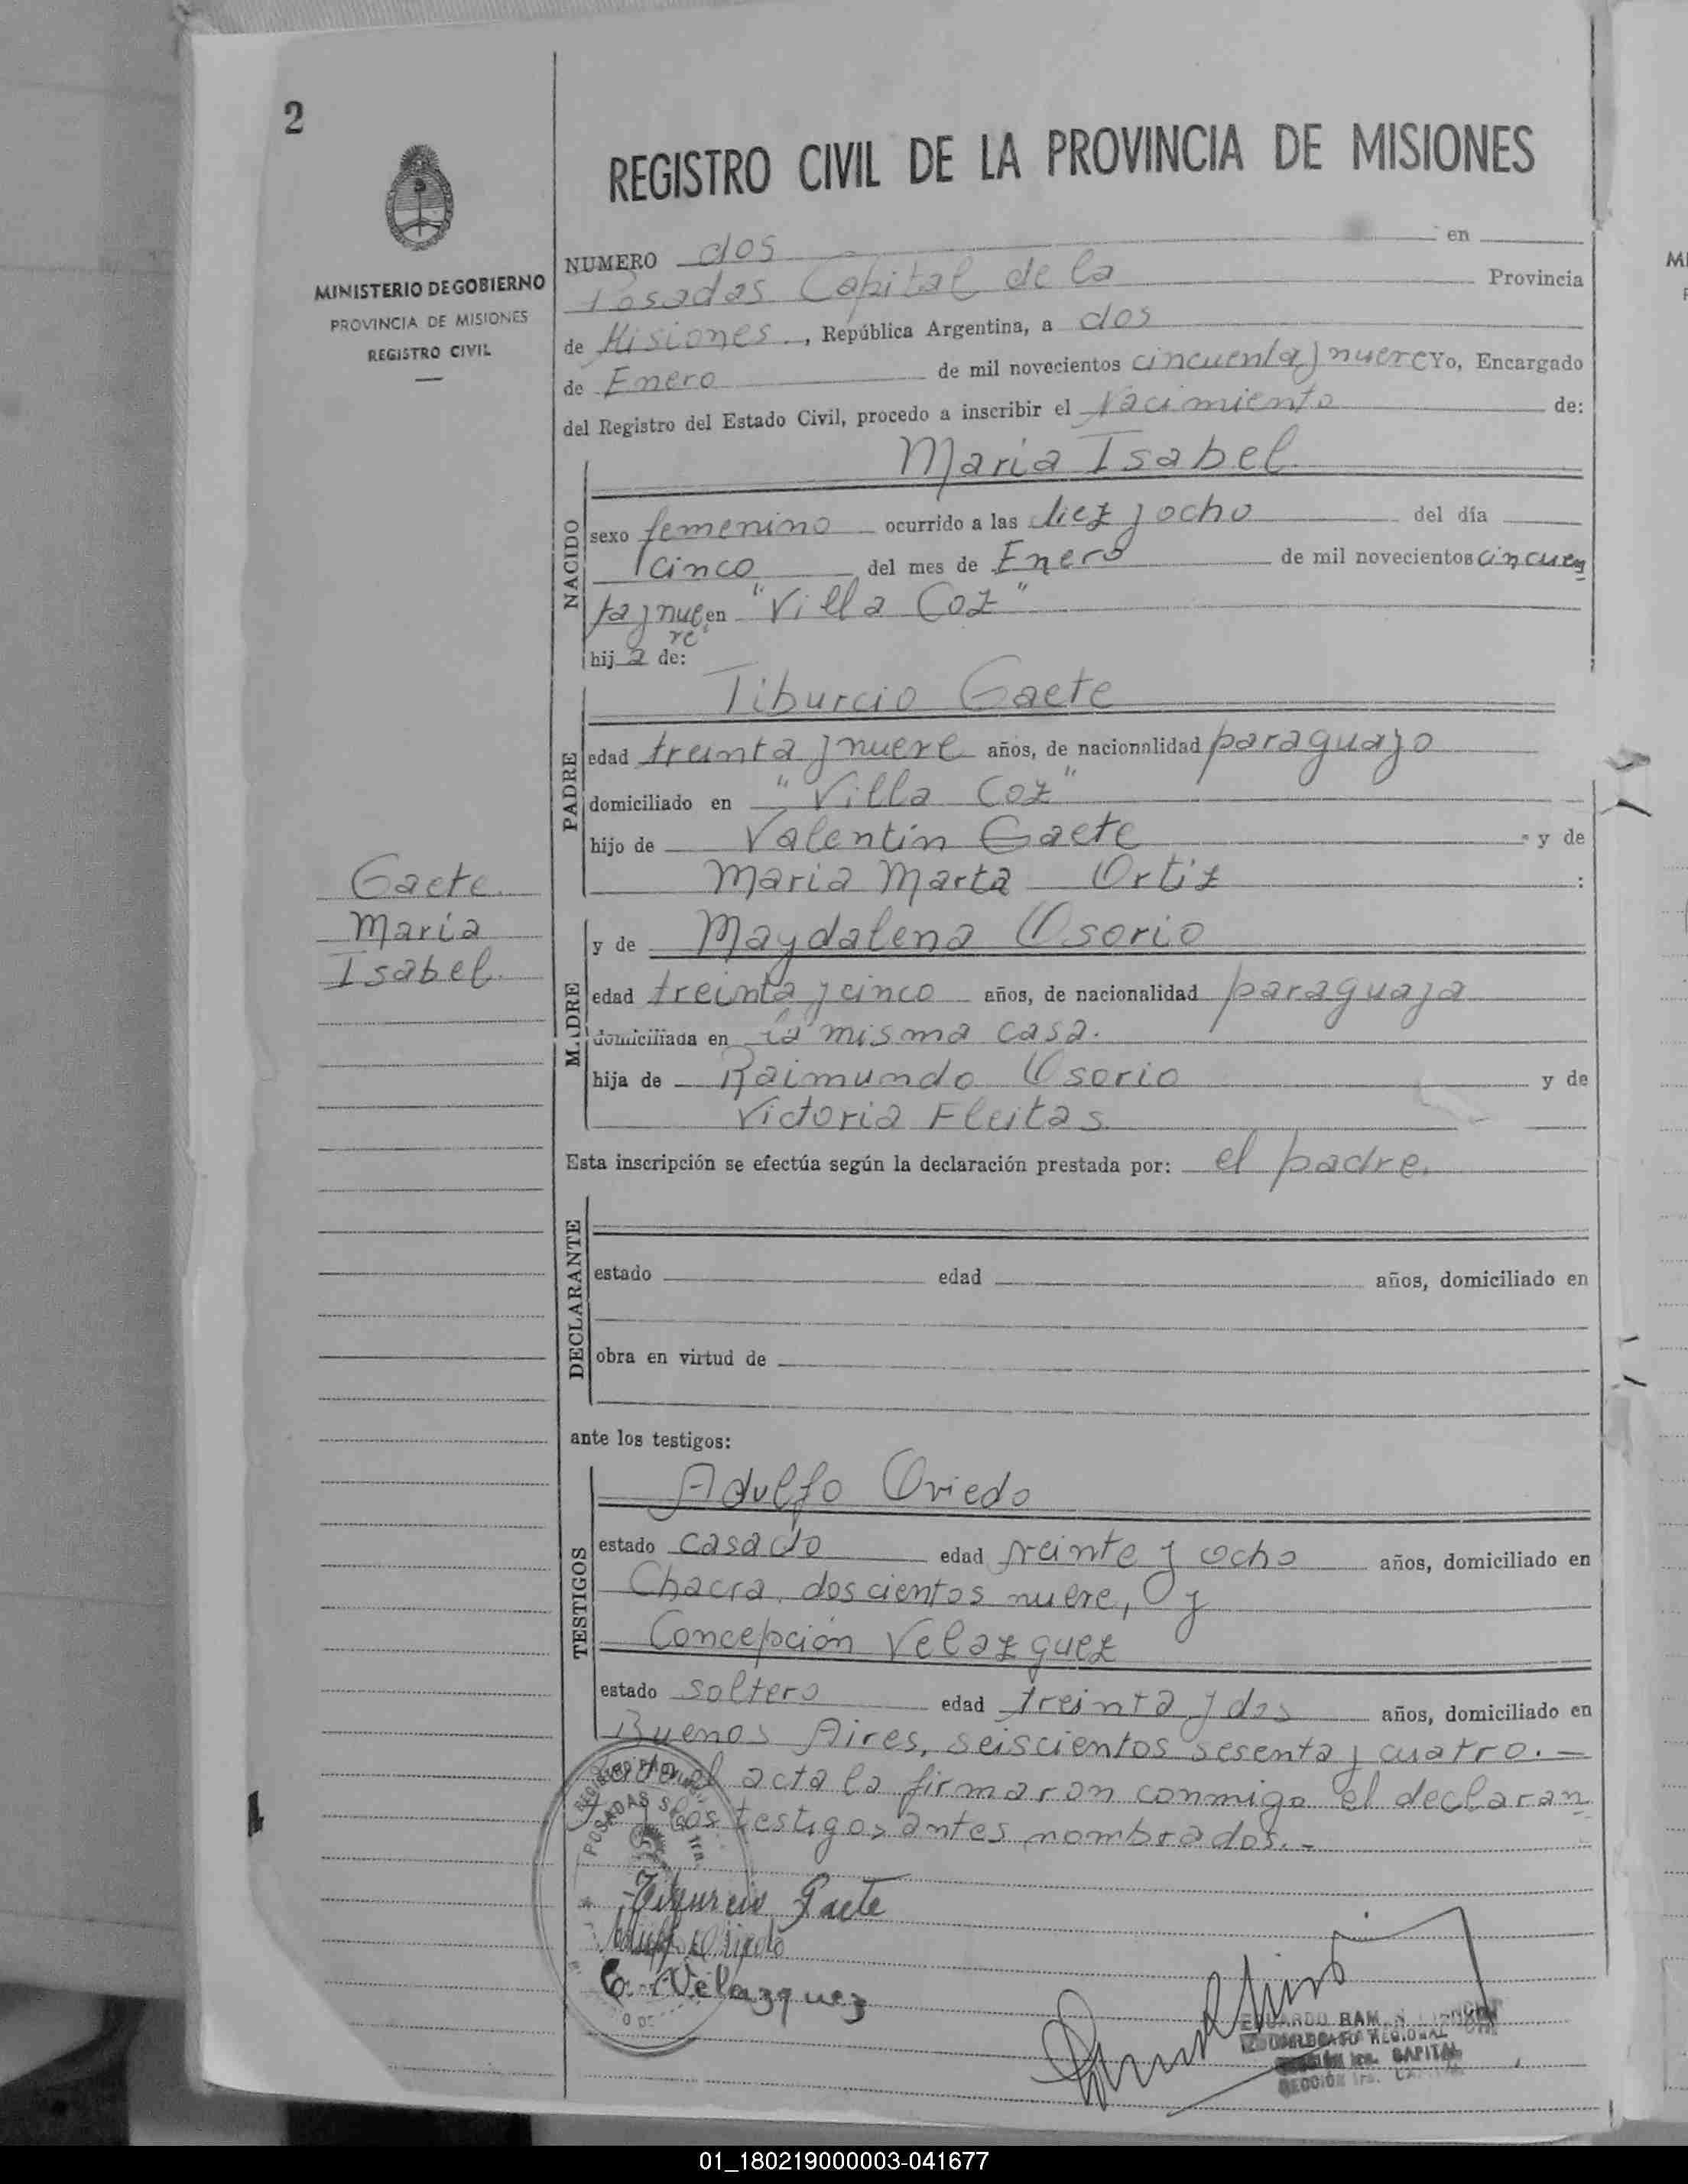 2
REGISTRO CIVIL DE LA PROVINCIA DE MISIONES
MINISTERIO DE GOBIERNO
PROVINCIA DE MISIONES
REGISTRO CIVIL
NUMERO dos en
Posadas Capital de la Provincia
de Misiones, República Argentina, a dos
de Enero de mil novecientos cincuenta y nueve Yo, Encargado
del Registro del Estado Civil, procedo a inscribir el Nacimiento de:
Maria Isabel
NACIDO
sexo femenino ocurrido a las diez y ocho del día
cinco del mes de Enero de mil novecientos cincuen
ta y nue en "Villa Coz"
ve
hij a de:
Tiburcio Gaete
PADRE
edad treinta y nueve años, de nacionalidad paraguayo
domiciliado en "Villa Coz"
hijo de Valentin Gaete y de
Maria Marta Ortiz :
Gaete
Maria
Isabel.
MADRE
y de Magdalena Osorio
edad treinta y cinco años, de nacionalidad paraguaya
domiciliada en la misma casa.
hija de Raimundo Osorio y de
Victoria Fleitas
Esta inscripción se efectúa según la declaración prestada por: el padre.
DECLARANTE
estado edad años, domiciliado en
obra en virtud de
ante los testigos:
TESTIGOS
Adolfo Oviedo
estado casado edad veinte y ocho años, domiciliado en
Chacra doscientos nueve, y
Concepción Velazquez
estado soltero edad treinta y dos años, domiciliado en
Buenos Aires, seiscientos sesenta y cuatro.-
acta la firmaron conmigo el declaran
los testigos antes nombrados.-
POSADAS
Tiburcio Gaete
Adolfo Oviedo
C. Velazquez
EDUARDO RAM
REGIONAL
CAPITAL
SECCIÓN 1ra. CAPITAL
01_180219000003-041677